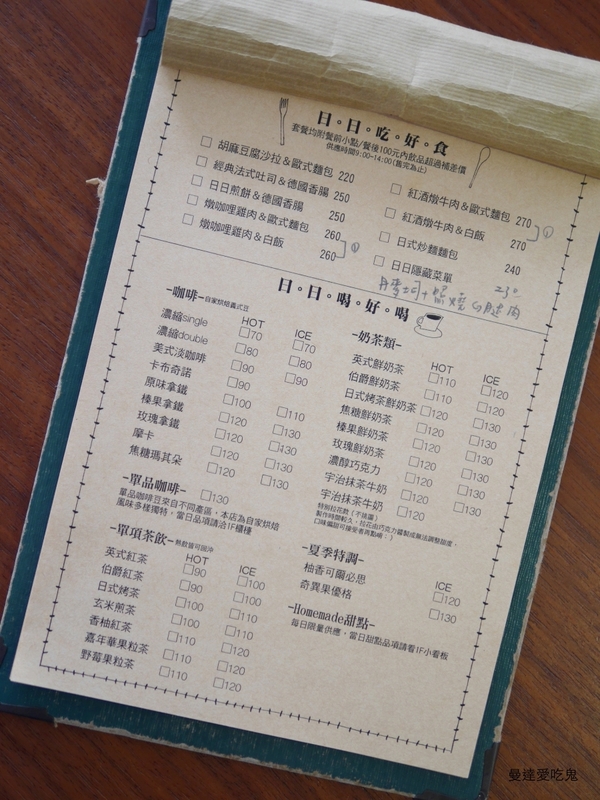 日。日。吃。好。食
套餐均附餐前小點/餐後100元內飲品超過補差價
供應時間9:00-14:00(售完為止)
□ 胡麻豆腐沙拉&歐式麵包 220
□ 經典法式吐司&德國香腸 250
□ 日日煎餅&德國香腸 250
□ 燉咖哩雞肉&歐式麵包 260
□ 燉咖哩雞肉&白飯 260
□ 紅酒燉牛肉&歐式麵包 270
□ 紅酒燉牛肉&白飯 270
□ 日式炒麵麵包 240
□ 日日隱藏菜單
230
日。日。喝。好。喝
-咖啡-自家烘焙義式豆
HOT ICE
濃縮single □70 □70
濃縮double □80 □80
美式淡咖啡 □90 □90
卡布奇諾 □90
原味拿鐵 □100 □110
榛果拿鐵 □120 □130
玫瑰拿鐵 □120 □130
摩卡 □120 □130
焦糖瑪其朵 □120 □130
-單品咖啡- □130
單品咖啡豆來自不同產區，本店為自家烘焙
風味多樣獨特，當日品項請洽1F櫃檯
-單項茶飲-熱飲皆可回沖
HOT ICE
英式紅茶 □90 □100
伯爵紅茶 □90 □100
日式烤茶 □100 □110
玄米煎茶 □100 □110
香柚紅茶 □110 □120
嘉年華果粒茶 □110 □120
野莓果粒茶 □110 □120
-奶茶類-
HOT ICE
英式鮮奶茶 □110 □120
伯爵鮮奶茶 □110 □120
日式烤茶鮮奶茶 □120 □130
焦糖鮮奶茶 □120 □130
榛果鮮奶茶 □120 □130
玫瑰鮮奶茶 □120 □130
濃醇巧克力 □120 □130
宇治抹茶牛奶 □120 □130
宇治抹茶牛奶 □120
特別拉花款（不挑圖）
製作時間較久，拉花由巧克力醬製成無法調整甜度，
口味偏甜可接受者再點唷：）
-夏季特調-
ICE
柚香可爾必思 □120
奇異果優格 □130
-Homemade甜點-
每日限量供應，當日甜點品項請看1F小看板
曼達愛吃鬼